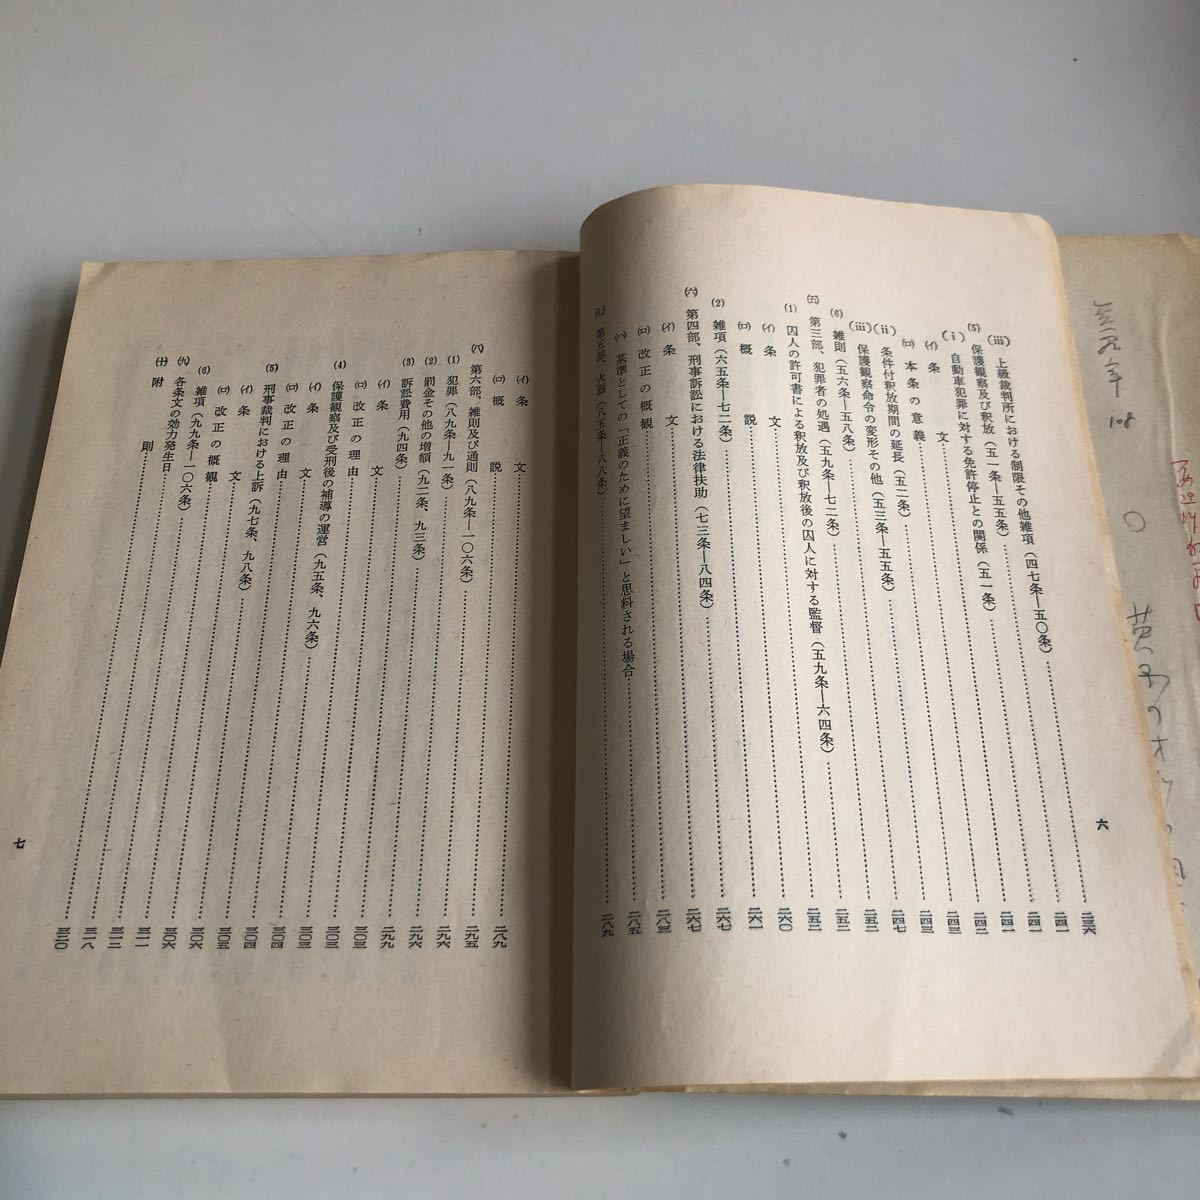 (iii) 上級裁判所における制限その他雑項(四七条―五〇条)……二三六
(5) 保護観察及び釈放(五一条―五五条)……二四一
(i) 自動車犯罪に対する免許停止との関係(五一条)……二四一
(イ) 条文……二四一
(ロ) 本条の意義……二四二
(ii) 条件付釈放期間の延長(五二条)……二四三
(iii) 保護観察命令の変形その他(五三条―五五条)……二四三
(6) 雑則(五六条―五八条)……二四七
(五) 第三部、犯罪者の処遇(五九条―七二条)……二五二
(1) 囚人の許可書による釈放及び釈放後の囚人に対する監督(五九条―六四条)……二五三
(イ) 条文……二五三
(ロ) 概説……二六〇
(2) 雑項(六五条―七二条)……二六一
(六) 第四部、刑事訴訟における法律扶助(七三条―八四条)……二六七
(イ) 条文……二六七
(ロ) 改正の概観……二八三
(ハ) 基準としての「正義のために望ましい」と思料される場合……二八五
(七) 第五部、火器(八五条―八八条)……二八九
六
(イ) 条文……二八九
(ロ) 概説……二九五
(八) 第六部、雑則及び通則(八九条―一〇六条)……二九六
(1) 犯罪(八九条―九一条)……二九六
(2) 罰金その他の増額(九二条、九三条)……二九九
(3) 訴訟費用(九四条)……
(イ) 条文……三〇三
(ロ) 改正の理由……三〇三
(4) 保護観察及び受刑後の補導の運営(九五条、九六条)……三〇四
(イ) 条文……三〇四
(ロ) 改正の理由……三〇五
(5) 刑事裁判における上訴(九七条、九八条)……三〇六
(イ) 条文……三〇六
(ロ) 改正の概観……三一一
(6) 雑項(九九条―一〇六条)……三一二
(九) 各条文の効力発生日……三一八
(十) 附則……三二〇
七
108